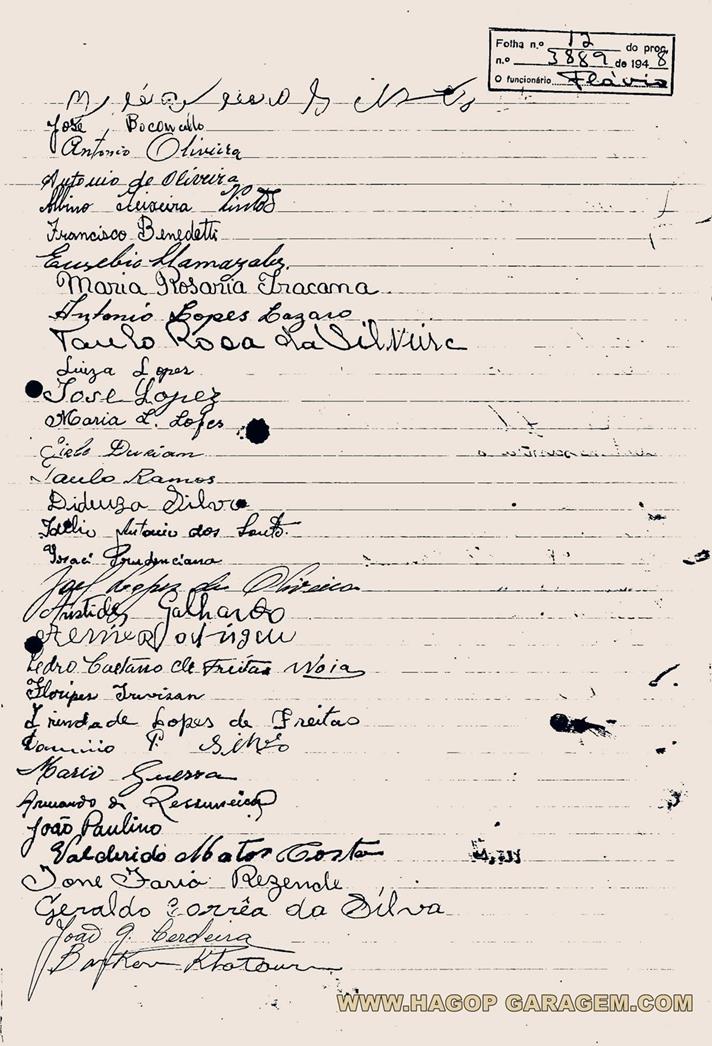 Folha n.º 12 do proc.
n.º 3889 de 1948
O funcionário Flávio
José
Antonio Oliveira
Antonio de Oliveira
Albino Teixeira
Francisco Benedetti
Eusebio Llamazales
Maria Rosaria Fracama
Antonio Lopes Lazaro
Paulo Rosa da Silveira
Luiza Lopes
José Lopez
Maria L. Lopes
Durian
Paulo Ramos
Silva
Antonio dos Santos
Joraci Prudenciana
José Lopez de Oliveira
Aristides Galhardo
Pedro Caetano de Freitas
Floripes Trevizan
Trindade Lopes de Freitas
P. Silva
Mario Guerra
Armando
João Paulino
Valderido Matos Costa
Jone Faria Rezende
Geraldo Corrêa da Silva
João G. Cerdeira
WWW.HAGOP GARAGEM.COM